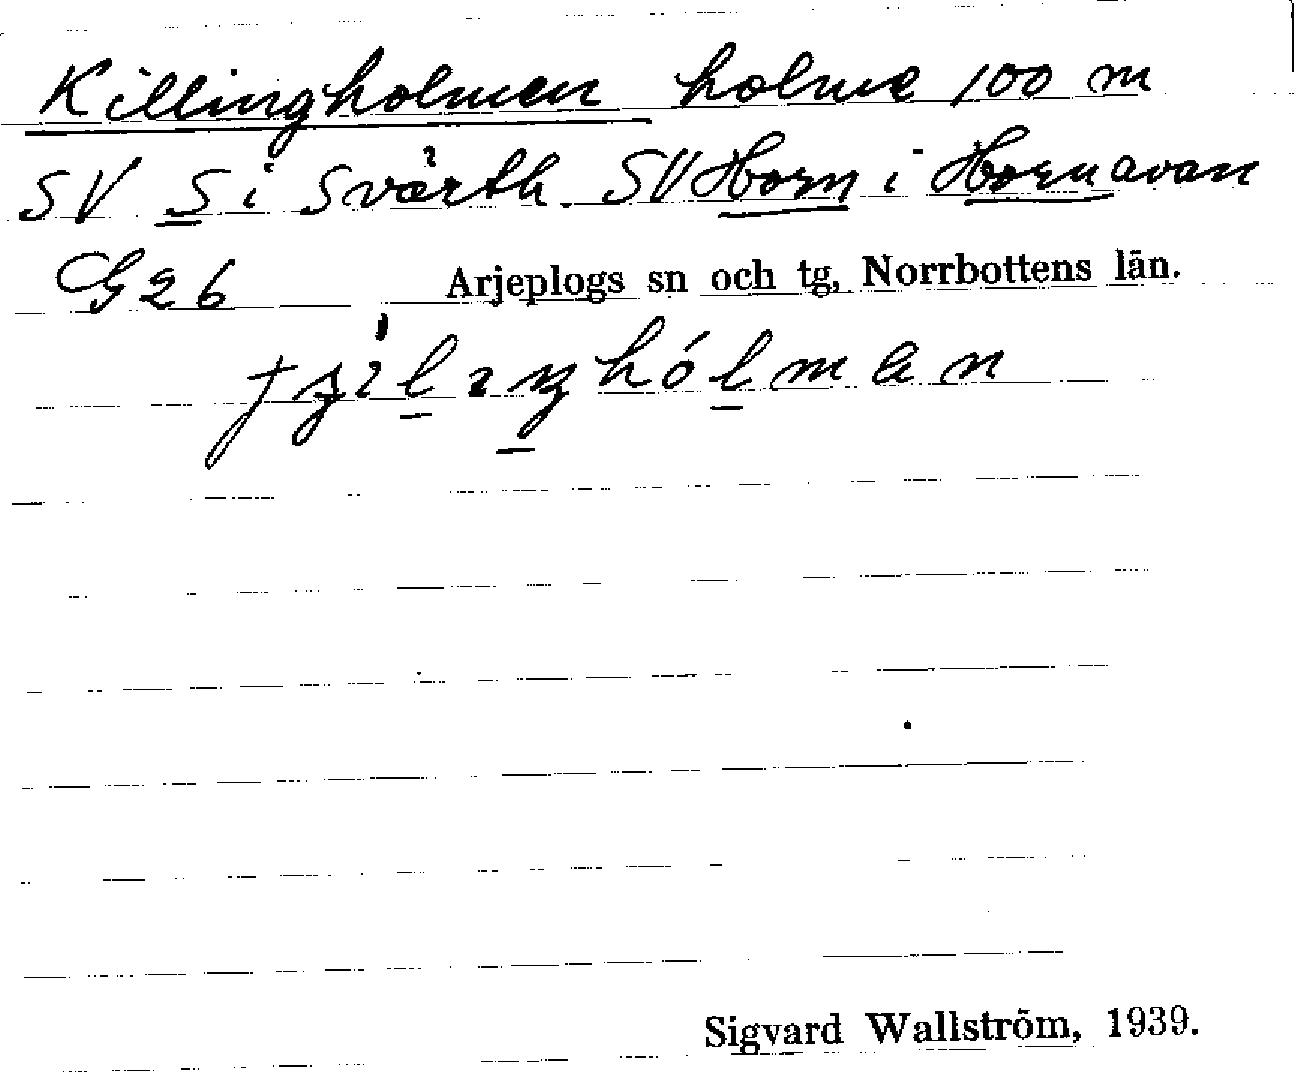 Killingholmen holme 100 m
SV S i Svärth. SV Horn i Hornavan
G 26 Arjeplogs sn och tg, Norrbottens län.
hólman
Sigvard Wallström, 1939.